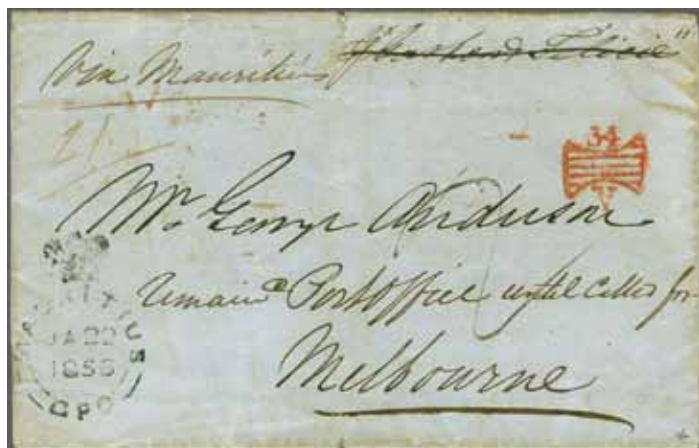 Via Mauritius
34
V
Mr. George Anderson
remain Post Office until called for
Melbourne
MAURITIUS
JA 22
1858
GPO